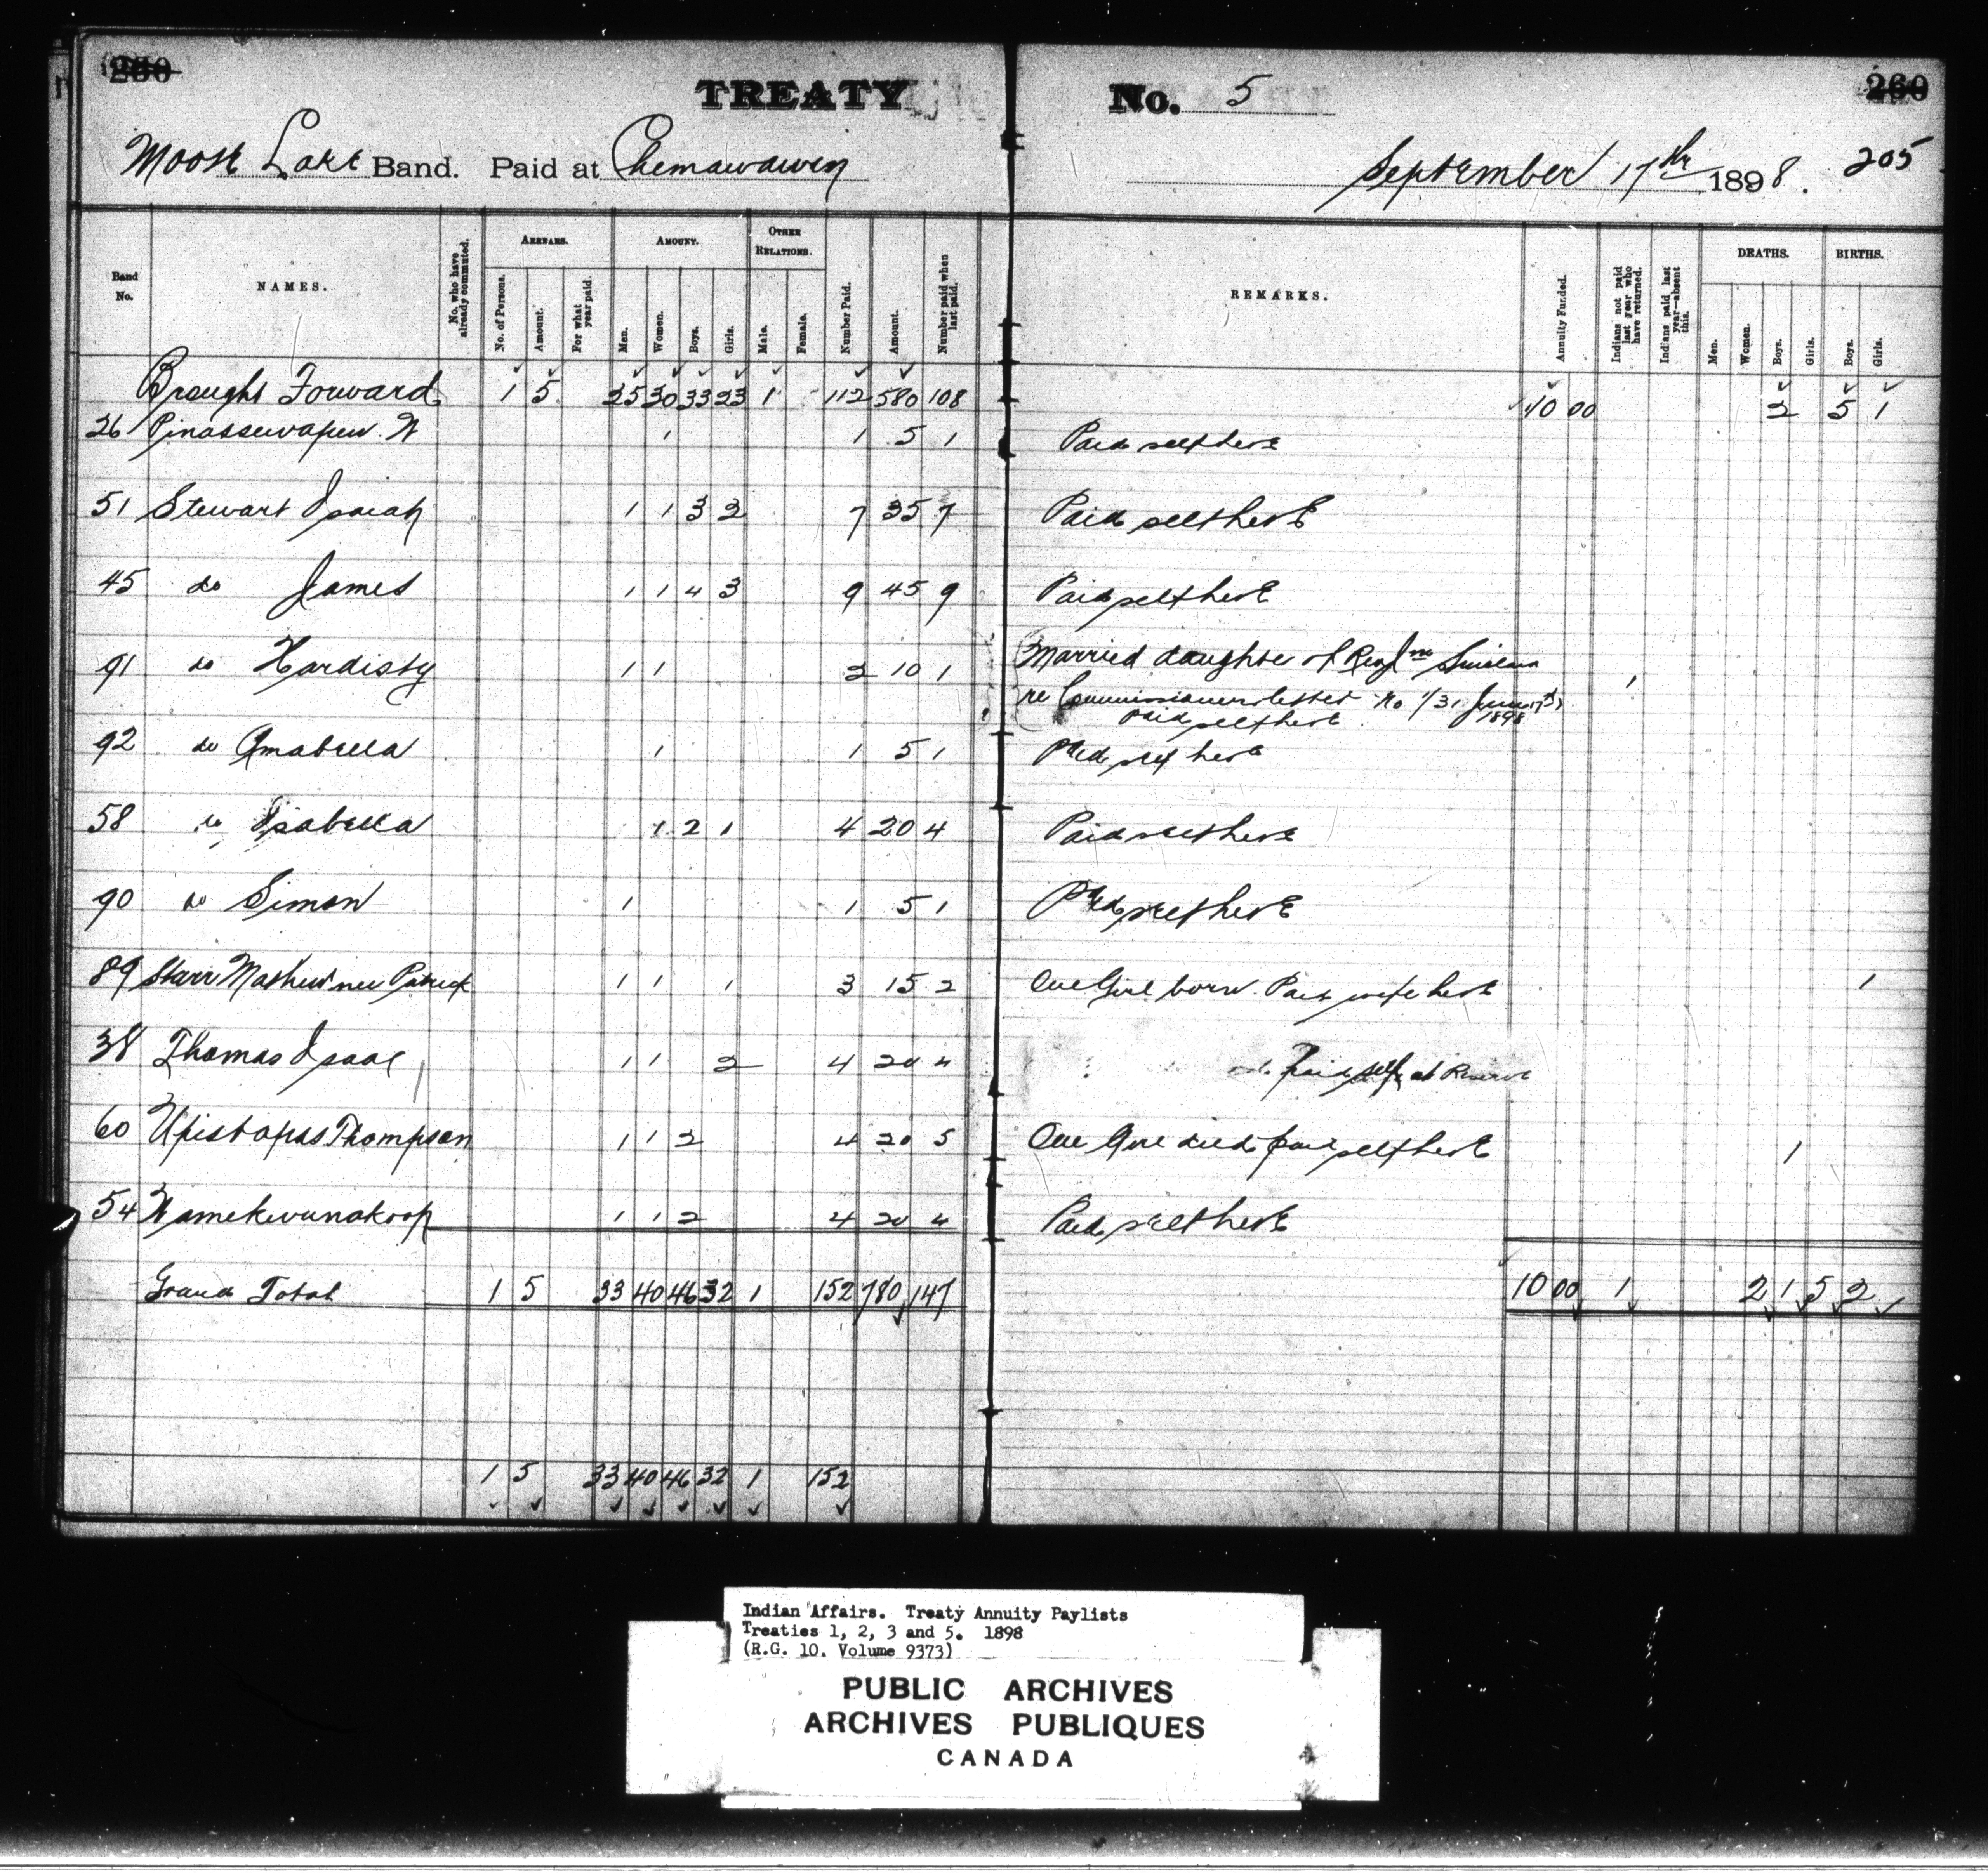 260 TREATY No. 5 260
Moose Lake Band. Paid at Chemawawin September 17th 1898. 205
Band No. NAMES. No. who have already commuted. ARREARS. No. of Persons. Amount. For what year paid. AMOUNT. Men. Women. Boys. Girls. OTHER RELATIONS. Male. Female. Number Paid. Amount. Number paid when last paid. REMARKS. Annuity Funded. Indians not paid last year who have returned. Indians paid last year—absent this. DEATHS. Men. Women. Boys. Girls. BIRTHS. Boys. Girls.
Brought Forward 1 5 25 30 33 23 1 112 580 108 10 00 2 5 1
26 Pinassewapew. W 1 1 5 1 Paid self here
51 Stewart Isaiah 1 1 3 2 7 35 7 Paid self here
45 do James 1 1 4 3 9 45 9 Paid self here
91 do Hardisty 1 1 2 10 1 Married daughter of 1
re Commissioners letter No 1898
paid self here
92 do Amabella 1 1 5 1 Paid self here
58 do Isabella 1 2 1 4 20 4 Paid self here
90 do Simon 1 1 5 1 Paid self here
89 Starr Mathew nee Patrick 1 1 1 3 15 2 One Girl born. Paid wife here 1
38 Thomas Isaac 1 1 2 4 20 4 paid self at Reserve
60 Upistapas Thompson 1 1 2 4 20 5 One Girl died paid self here 1
54 Wamekwunakoop 1 1 2 4 20 4 Paid self here
Grand Total 1 5 33 40 46 32 1 152 780 147 10 00 1 2 1 5 2
1 5 33 40 46 32 1 152
Indian Affairs. Treaty Annuity Paylists
Treaties 1, 2, 3 and 5. 1898
(R.G. 10. Volume 9373)
PUBLIC ARCHIVES
ARCHIVES PUBLIQUES
CANADA